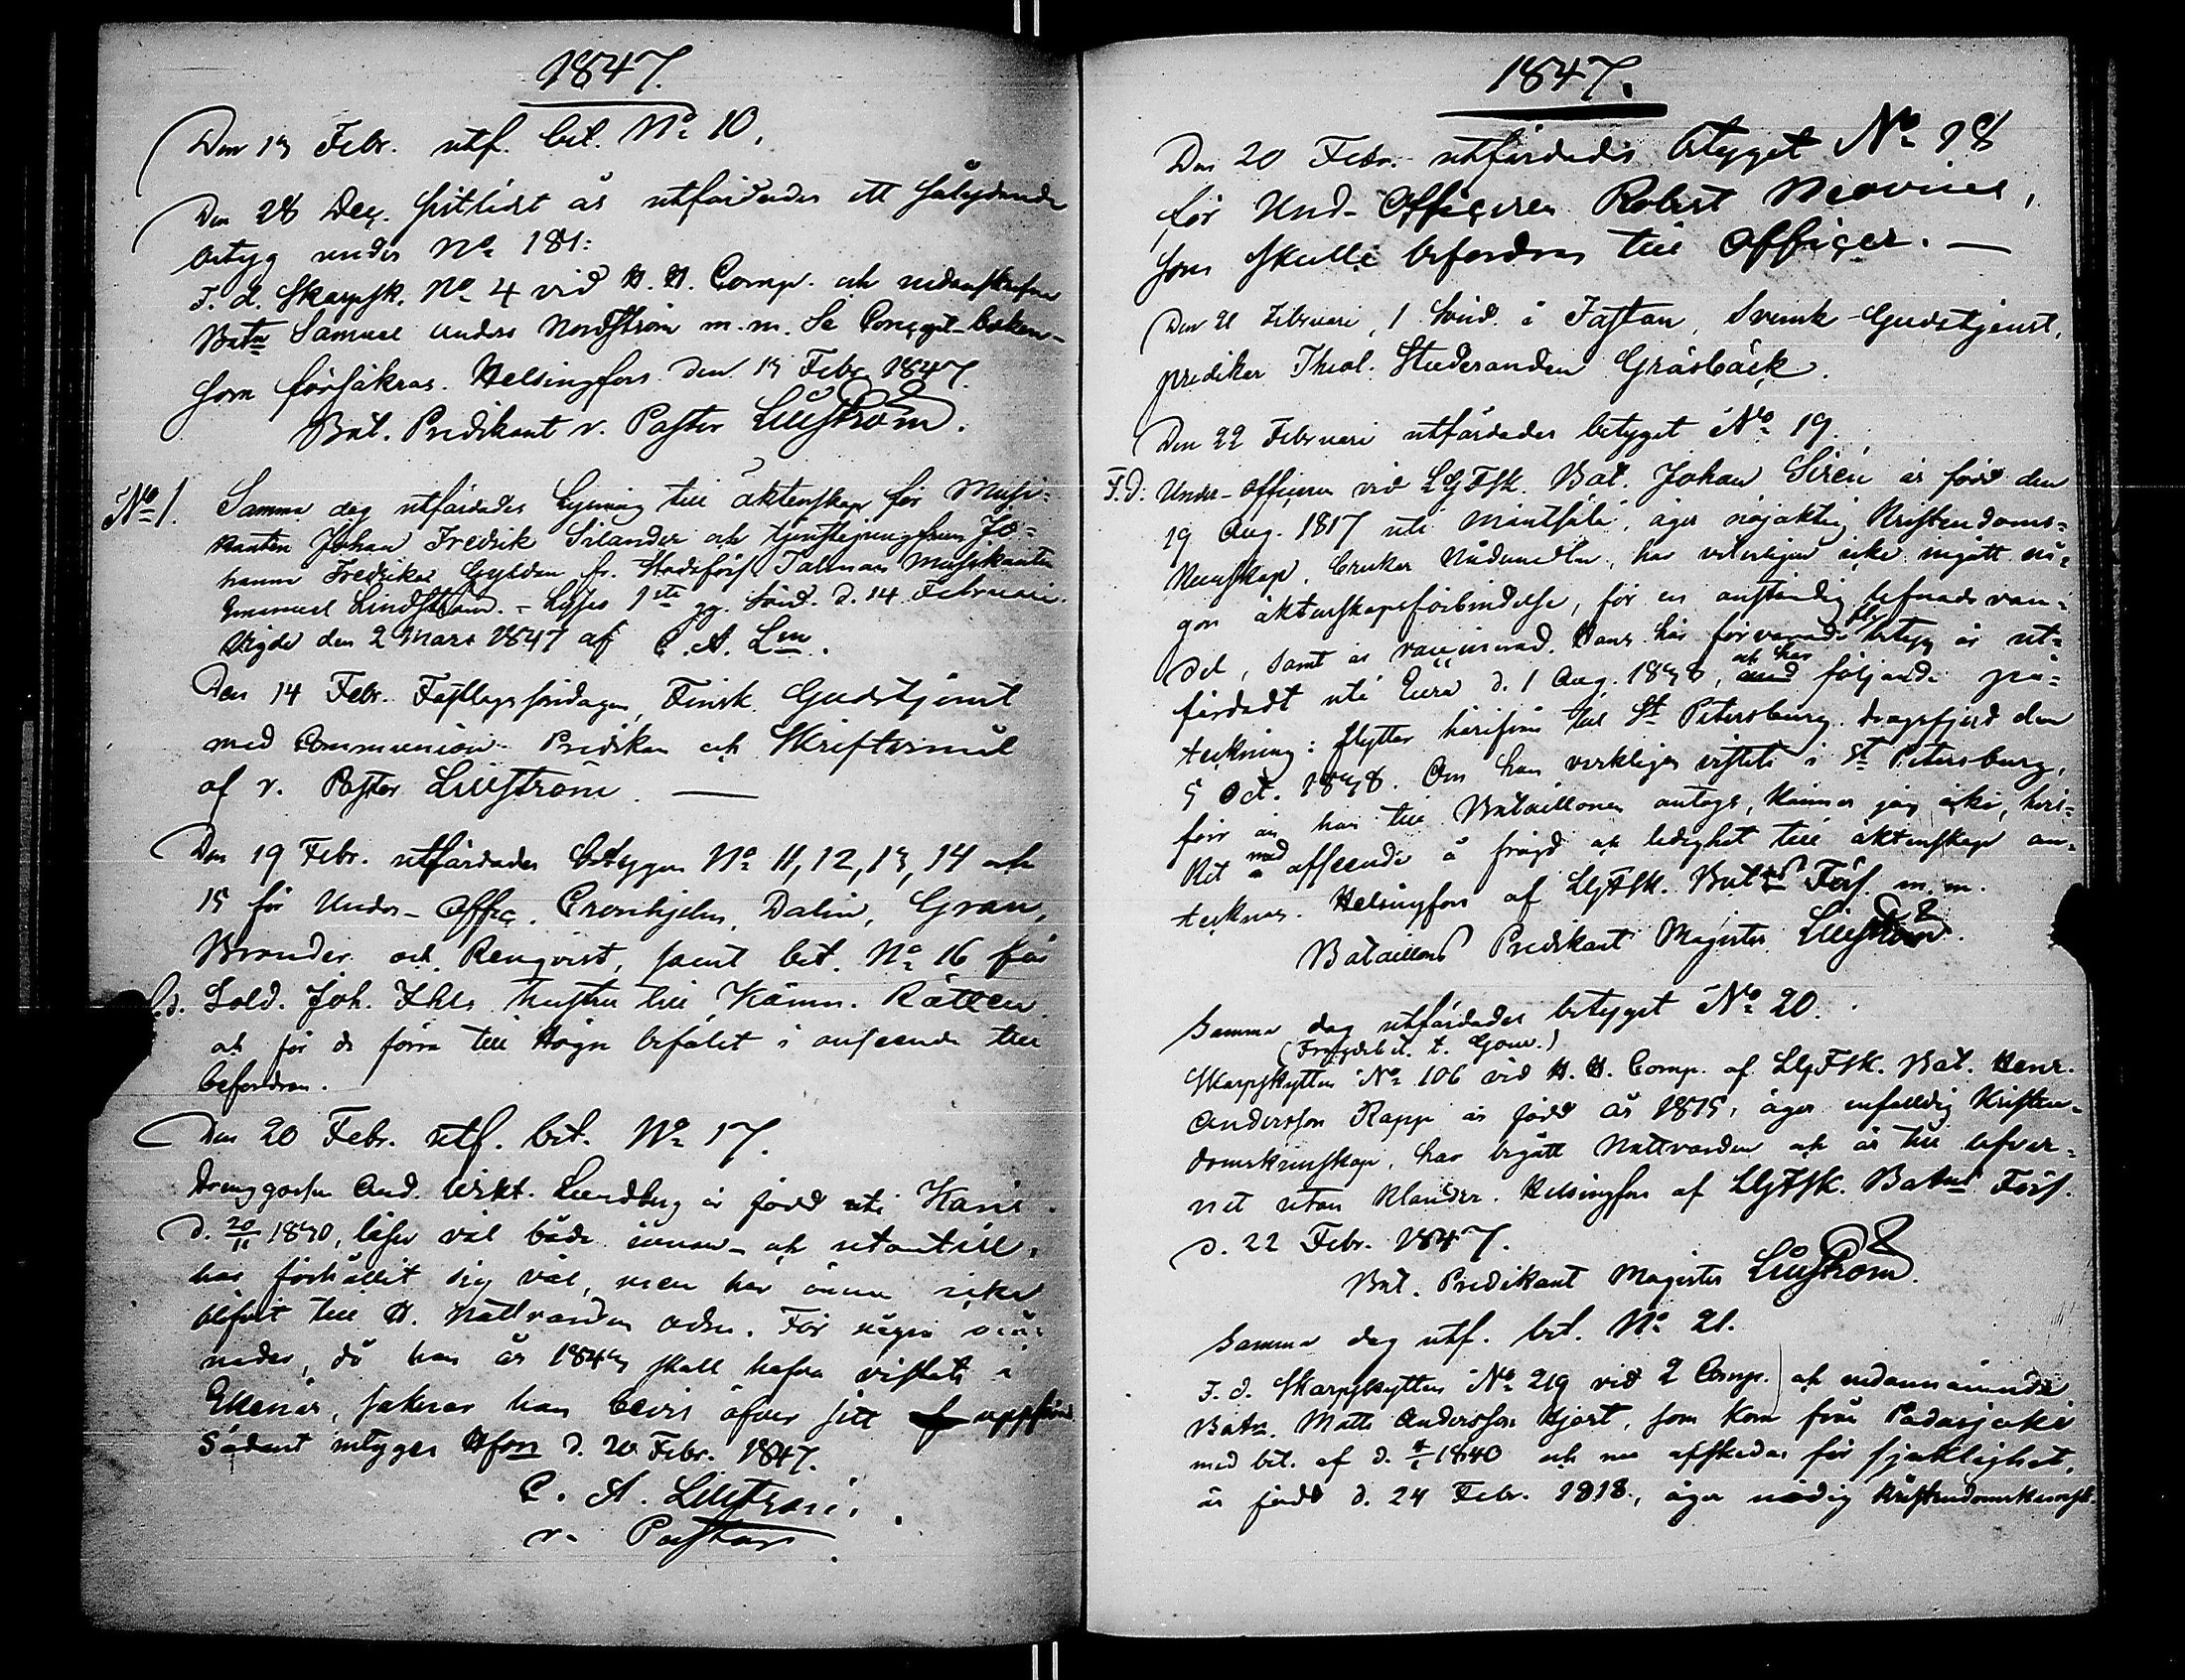 1847.
Den 13 Febr. utf. bet. No 10.
Den 28 Dec. sistlidit år utfärdades ett sålydande
betyg under No 181:
F. d. Skarpsk. No 4 vid H. H. Comp. och nedanskrefne
Batn Samuel Anders Nordström m.m. Se Concept-boken
som försäkras. Helsingfors den 13 Febr. 1847.
Bat. Predikant v. Pastor Liliström.
No 1. Samma dag utfärdades Lysning till äktenskap för Musi-
kanten Johan Fredrik Silander och tjenstejungfrun Jo-
hanna Fredrika Gyldén fr. Stadsförs. Talman Musikanten
Emanuel Lindström. - Lyses 1sta gg. Sönd. d. 14 Februari.
Vigde den 2 Mars 1847 af C. A. Lm.
Den 14 Febr. Fastlagssöndagen, Finsk Gudstjenst
med Communion. Predikan och Skriftermål
af v. Pastor Liliström. —
Den 19 Febr. utfärdades betygen No 11, 12, 13, 14 och
15 för Under-Offic. Cronhjelm, Dalin, Gran,
Brander och Renqvist, samt bet. No 16 för
f.d. Sold. Joh. Ihls hustru till Kämn. Rätten
och för de förra till Högn befälet i anseende till
befordran.
Den 20 Febr. utf. bet. No 17.
Drenggossen And. Wikt. Lundberg är född uti Karis
d. 20/11 1830, läser väl både innan- och utantill,
har förhållit sig väl, men har ännu icke
blifvit till H. Nattvarden adm. För några må-
nader, då han år 1843 skall hafva vistats i
Ekenäs, saknar han bevis öfver sitt uppför
Sådant intygar Hfors d. 20 Febr. 1847.
C. A. Liliström.
v. Pastor
1847.
Den 20 Febr. utfärdades betyget No 18
för Und-Officeren Robert Neovius,
som skulle befordras till Officer. —
Den 21 Februari, 1 Sönd. i Fastan, Svensk-Gudstjenst,
prediker Theol. Studeranden Gräsbäck.
Den 22 Februari utfärdades betyget No 19.
F.d. Under-officeren vid LGFSk. Bat. Johan Sirén är född den
19 Aug. 1817 uti Mäntsälä, äger nöjaktig Kristendoms-
kunskap, brukar Nådemedlen, har veterligen icke ingått nå-
gon äktenskapsförbindelse, för en anständig lefnads van-
del, samt är vaccinerad. Hans här förvarade betyg är ut-
färdadt uti Eura d. 1 Aug. 1838, och har följande på-
teckning: flyttar härifrån till St Petersburg. Dragsfjerd den
5 Oct. 1838. Om han verkligen vistats i St Petersburg,
förr än han till Bataillonen antogs, känner jag icke, hvil-
ket med afseende å frägd och ledighet till äktenskap an-
tecknas. Helsingfors af LGFSk. Batns Förs. m.m.
Bataillons Predikant Magister Liliström.
Samma dag utfärdades betyget No 20.
(Frejdebet. t. Gouv.)
Skarpskytten No 106 vid H. H. Comp. af LGFSk. Bat. Henr.
Andersson Rapp är född år 1815, äger enfaldig Kristen-
domskunskap, har begått Nattvarden och är till lefver-
net utan klander. Helsingfors af LGFSk. Batns Förs.
d. 22 Febr. 1847.
Bat. Predikant Magister Liliström.
Samma dag utf. bet. No 21.
F. d. Skarpskytten No 219 vid 2 Comp. och nedannämnde
Batn. Matts Andersson Hjort, som kom från Padasjoki
med bet. af d. 1840 och nu afskedas för sjuklighet,
är född d. 24 Febr. 1818, äger nödig Kristendomskunsk.